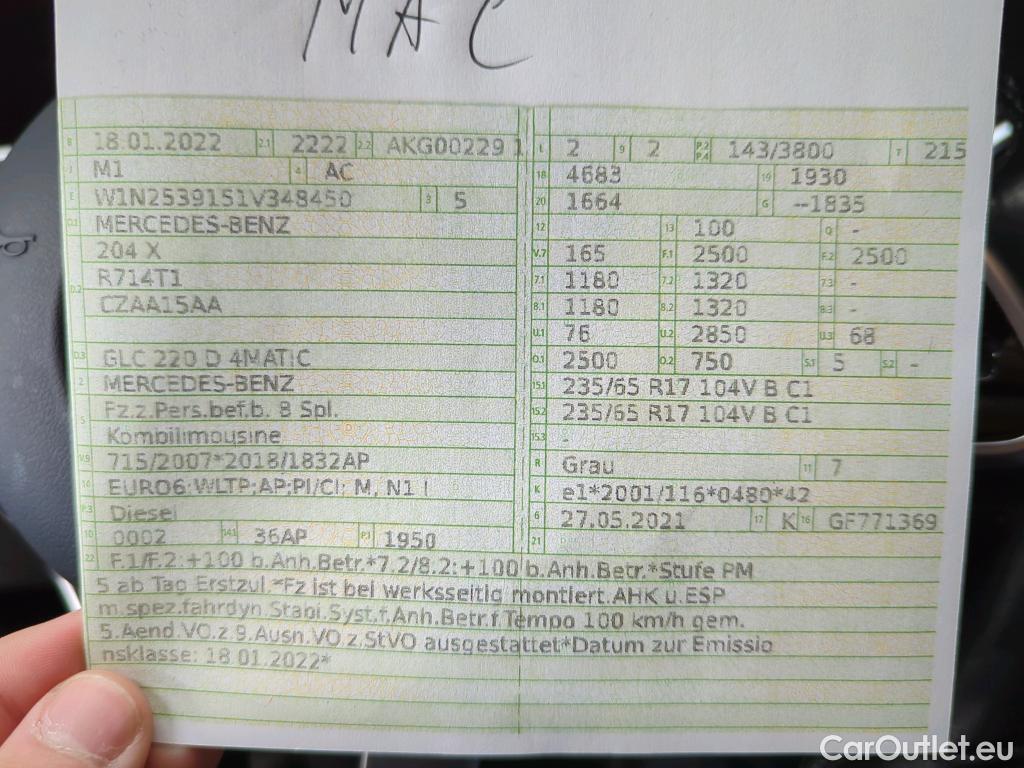 MAC
B 18.01.2022 2.1 2222 2.2 AKG00229 1
J M1 4 AC
E W1N2539151V348450 3 5
D.1 MERCEDES-BENZ
204 X
D.2 R714T1
CZAA15AA
D.3 GLC 220 D 4MATIC
2 MERCEDES-BENZ
5 Fz.z.Pers.bef.b. 8 Spl.
Kombilimousine
V.9 715/2007*2018/1832AP
14 EURO6;WLTP;AP;PI/CI; M, N1 I
P.3 Diesel
10 0002 14.1 36AP P.1 1950
L 2 9 2 P.2 P.4 143/3800 T 215
18 4683 19 1930
20 1664 G --1835
12 13 100 Q -
V.7 165 F.1 2500 F.2 2500
7.1 1180 7.2 1320 7.3 -
8.1 1180 8.2 1320 8.3 -
U.1 76 U.2 2850 U.3 68
O.1 2500 O.2 750 S.1 5 S.2 -
15.1 235/65 R17 104V B C1
15.2 235/65 R17 104V B C1
15.3 -
R Grau 11 7
K e1*2001/116*0480*42
6 27.05.2021 17 K 16 GF771369
21
22 F.1/F.2:+100 b.Anh.Betr.*7.2/8.2:+100 b.Anh.Betr.*Stufe PM
5 ab Tag Erstzul.*Fz ist bei werksseitig montiert.AHK u.ESP
m.spez.fahrdyn.Stabi.Syst.f.Anh.Betr.f.Tempo 100 km/h gem.
5.Aend.VO.z 9.Ausn.VO.z.StVO ausgestattet*Datum zur Emissio
nsklasse: 18.01.2022*
CarOutlet.eu